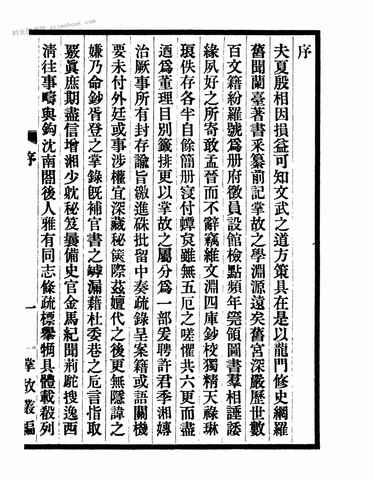 序
夫夏殷相因損益可知文武之道方策具在是以龍門修史網羅
舊聞蘭臺著書釆纂前記掌故之學淵源遠矣舊宮深嚴歷世數
百文籍紛羅號爲册府徵員設館檢點頻年冕領圖書羣相諈諉
緣夙好之所寄敢孟晉而不辭竊維文淵四庫鈔校獨精天祿琳
琅佚存各半自餘簡册寖付蟫食雖無五厄之嗟懼共六更而盡
迺爲董理目別籤排更以掌故之屬分爲一部爰聘許君季湘專
治厥事所有封存諭旨繳進硃批留中奏疏錄呈案籍或語關機
要未付外廷或事涉權宜深藏秘篋際茲嬗代之後更無隱諱之
嫌乃命鈔胥登之掌錄旣補官書之罅漏藉杜委巷之巵言指取
嚴眞庶期盡信增湘少躭秘笈曩備史官金馬紀聞荊駝搜逸西
淸往事疇與鉤沈南閣後人雅有同志條疏標擧犕具體裁列
序
一
掌故叢編